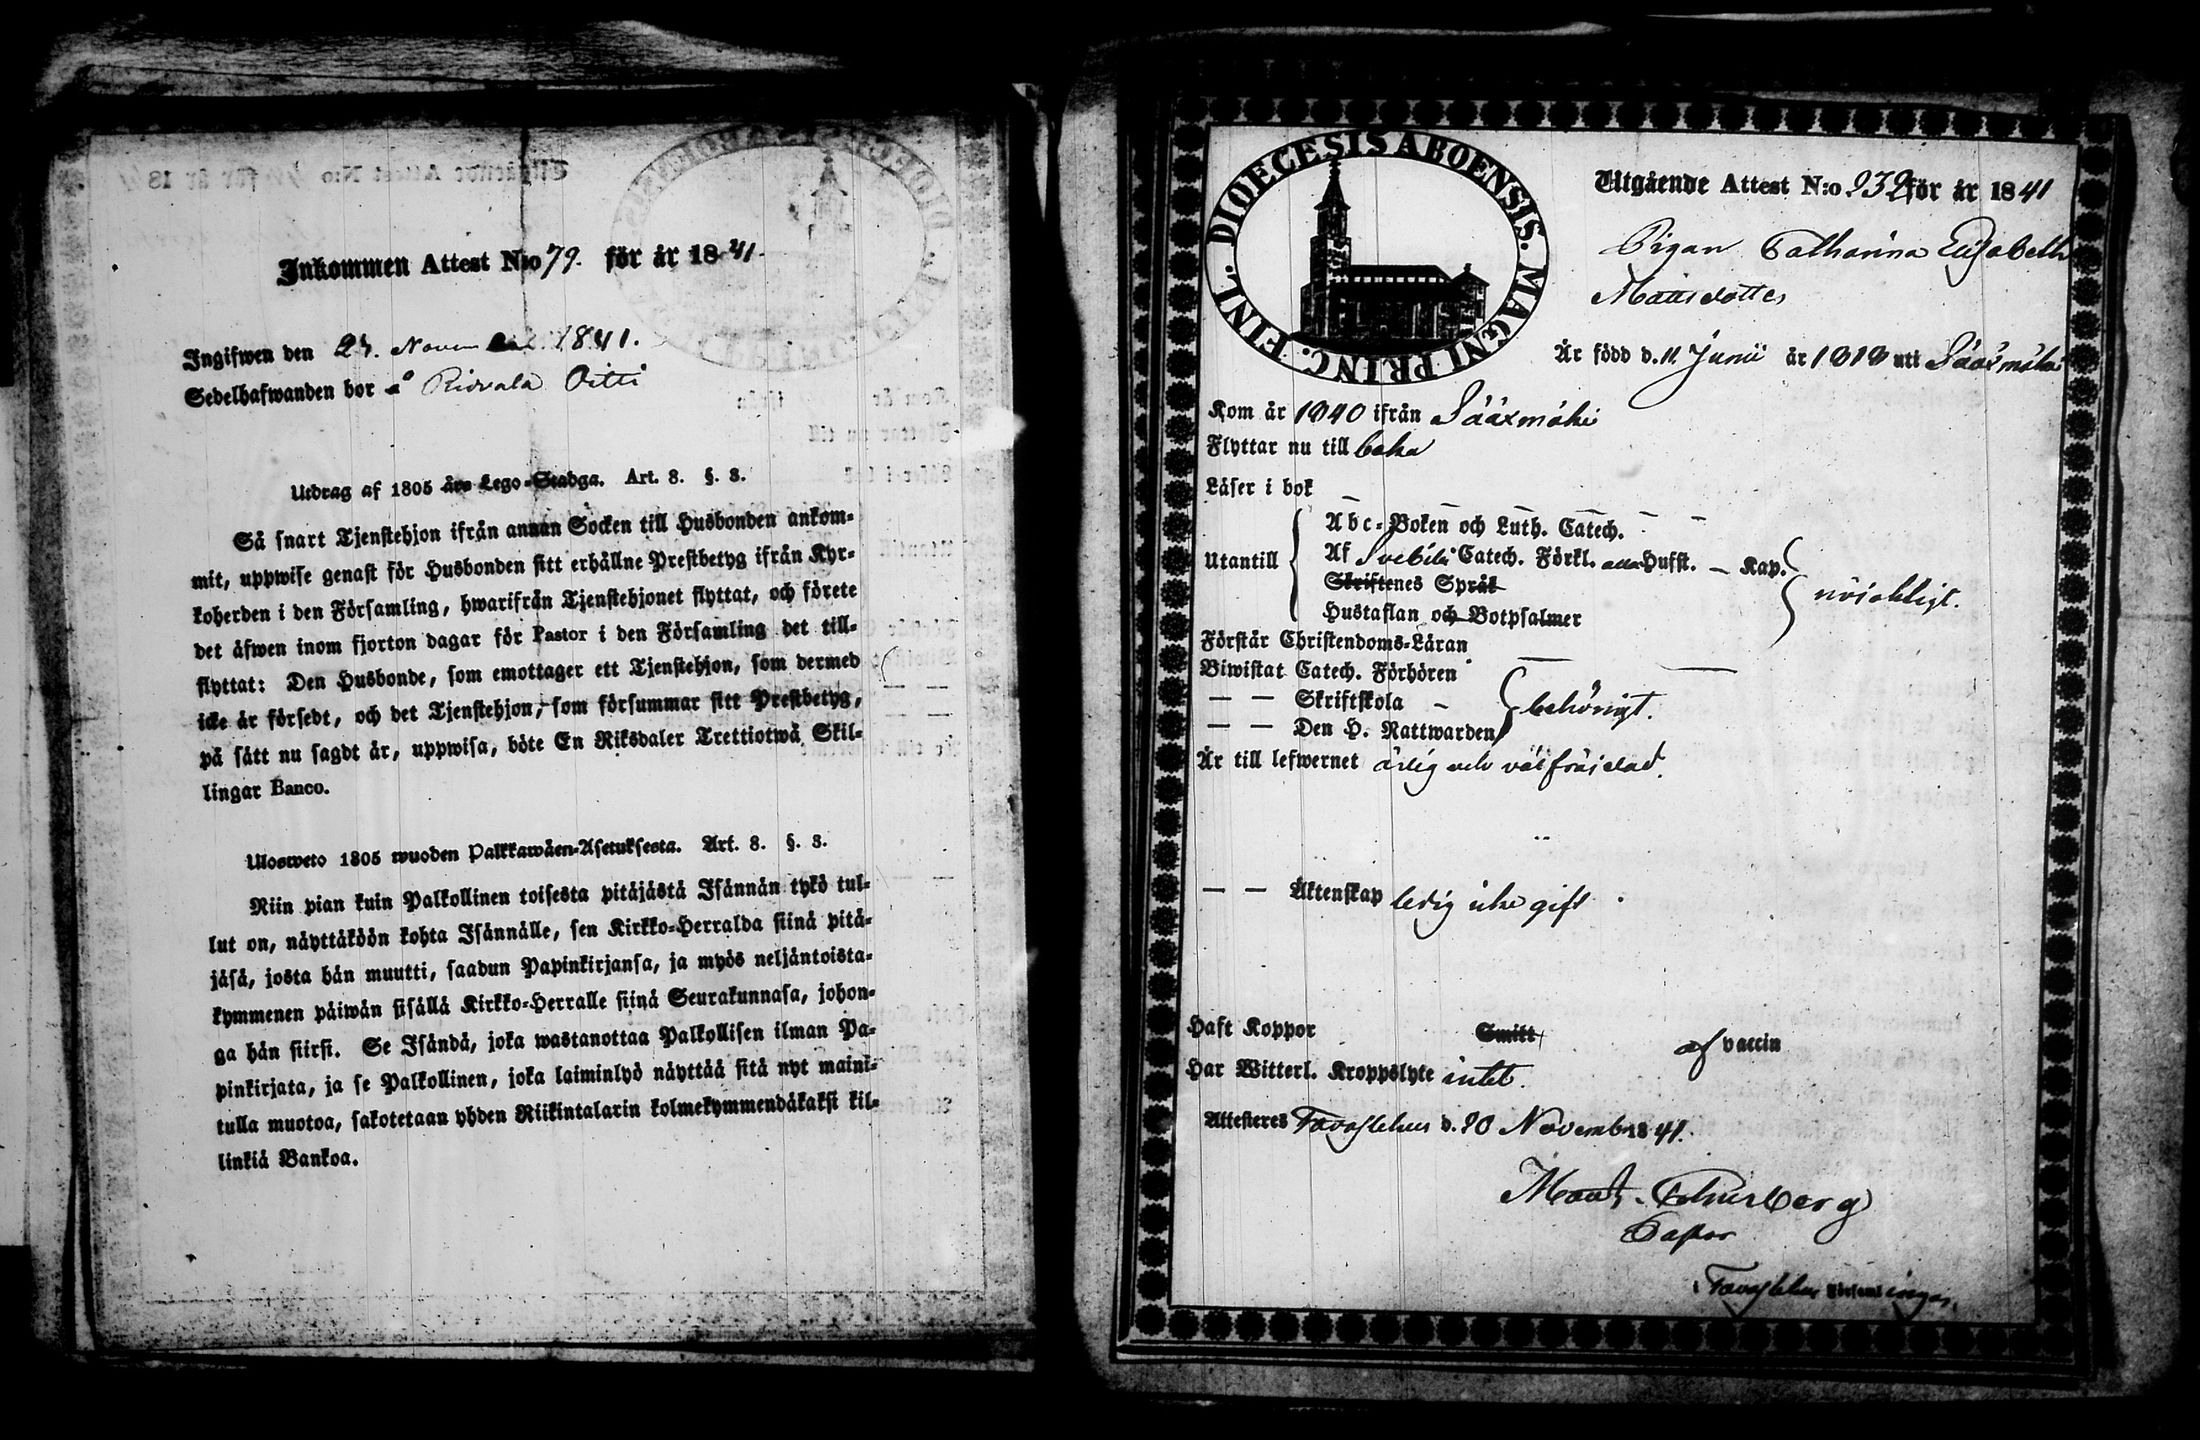 Inkommen Attest N:o 79. för år 1841.
Ingifwen den 27. November 1841.
Sedelhafwanden bor å Ridvala Pitti
Utdrag af 1805 års Lego-Stadga. Art. 8. §. 3.
Så snart Tjenstehjon ifrån annan Socken till Husbonden ankom-
mit, uppwise genast för Husbonden sitt erhållne Prestbetyg ifrån Kyr-
koherden i den Församling, hwarifrån Tjenstehjonet flyttat, och förete
det äfwen inom fjorton dagar för Pastor i den Församling det till-
flyttat: Den Husbonde, som emottager ett Tjenstehjon, som dermed
icke är försedt, och det Tjenstehjon, som försummar sitt Prestbetyg,
på sätt nu sagdt är, uppwisa, böte En Riksdaler Trettiotwå Skil-
lingar Banco.
Ulosweto 1805 wuoden Palkkawäen-Asetuksesta. Art. 8. §. 3.
Niin pian kuin Palkollinen toisesta pitäjästä Isännän tykö tul-
lut on, näyttäköön kohta Isännälle, sen Kirkko-Herralda siinä pitä-
jäsä, josta hän muutti, saadun Papinkirjansa, ja myös neljäntoista-
kymmenen päiwän sisällä Kirkko-Herralle siinä Seurakunnasa, johon-
ga hän siirsi. Se Isändä, joka wastanottaa Palkollisen ilman Pa-
pinkirjata, ja se Palkollinen, joka laiminlyö näyttää sitä nyt maini-
tulla muotoa, sakotetaan yhden Riikintalarin kolmekymmendäkaksi kil-
linkiä Bankoa.
DIOECESIS ABOENSIS. MAGNI PRINC. FINL.
Utgående Attest N:o 232 för år 1841
Pigan Catharina Elisabeth
Mattsdotter
Är född d. 11 Junii år 1818 uti Sääxmäki
Kom år 1840 ifrån Sääxmäki
Flyttar nu till baka
Läser i bok
Abc-Boken och Luth. Catech.
Utantill Af Svebilii Catech. Förkl. alla Hufst. – Kap. nöjaktigt.
Skriftenes Språk
Hustaflan och Botpsalmer
Förstår Christendoms-Läran
Biwistat Catech. Förhören
— — Skriftskola behörigt.
— — Den H. Nattwarden
Är till lefwernet ärlig och välfräjdad.
— — Äktenskap ledig icke gift
Haft Koppor Smitt af vaccin
Har Witterl. Kroppslyte intet.
Attesteres Tavastehus d. 20 November 1841.
Pastor
Tavastehus Församlingar.